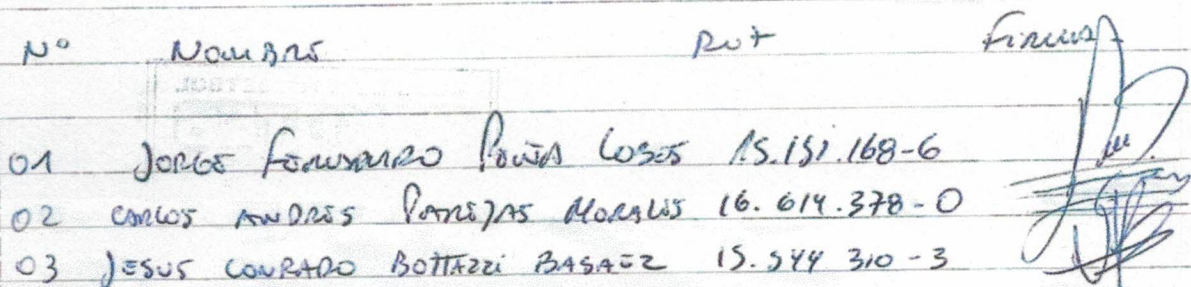 Nº NOMBRE RUT FIRMA
01 JORGE FERNANDO 15.151.168-6
02 CARLOS ANDRES PAREJAS MORALES 16.614.378-0
03 JESUS CONRADO BOTTAZZI BASAEZ 15.544 310-3